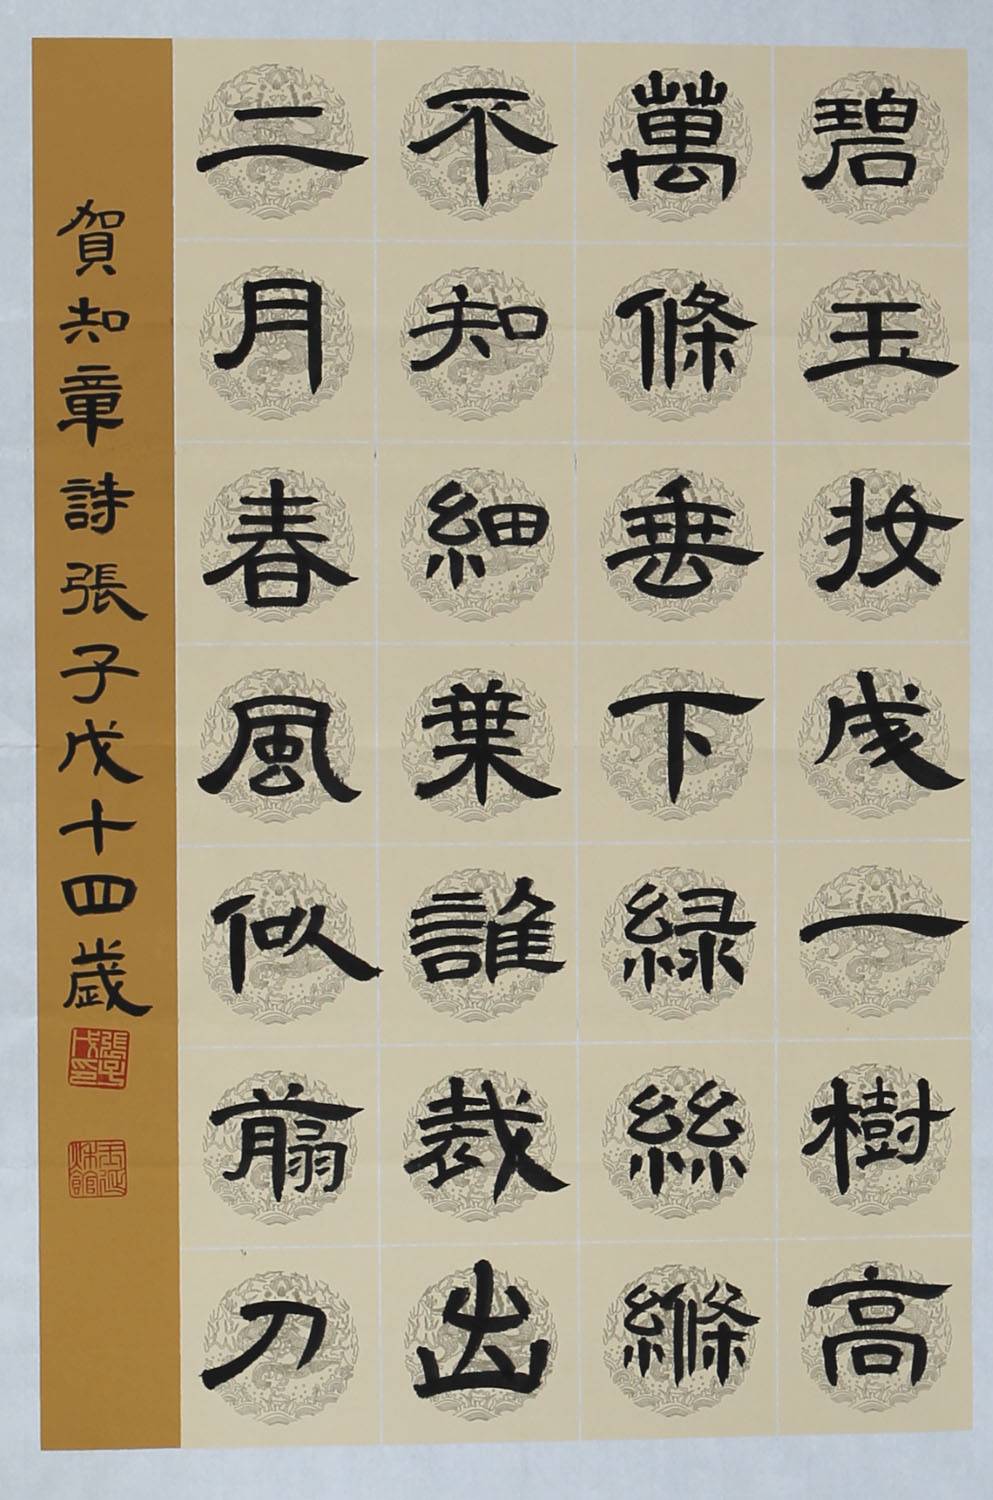 碧玉妝成一樹高
萬條垂下緑絲縧
不知細葉誰裁出
二月春風似翦刀
賀知章詩張子戊十四歲